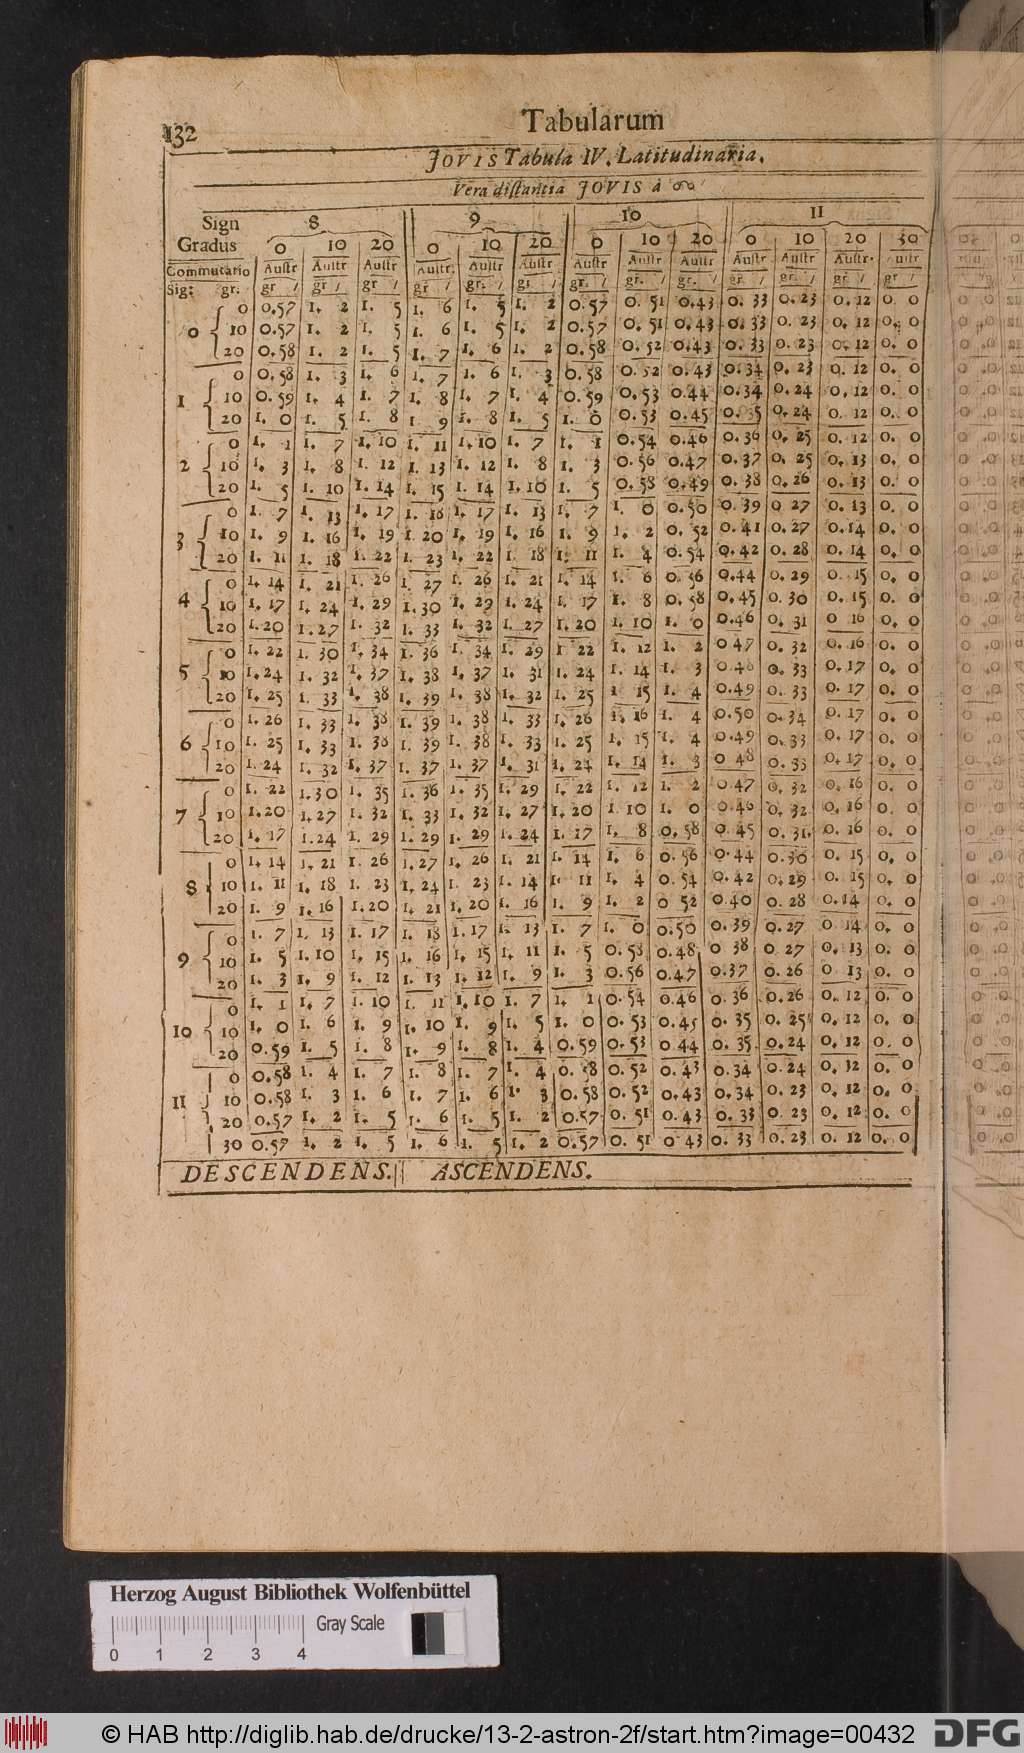 132 Tabularum
JOVIS Tabula IV. Latitudinaria.
Vera distantia JOVIS à ☊
Sign 8 9 10 11
Gradus 0 10 20 0 10 20 0 10 20 0 10 20 30
Commutatio Austr Austr Austr Austr. Austr Austr Austr Austr Austr Austr Austr Austr. Austr
Sig: gr. gr / gr / gr / gr / gr. / gr / gr. / gr. / gr. / gr. / gr. / gr / gr /
0 0 0.57 1. 2 1. 5 1. 6 1. 5 1. 2 0.57 0. 51 0.43 0. 33 0. 23 0. 12 0. 0
10 0.57 1. 2 1. 5 1. 6 1. 5 1. 2 0.57 0. 51 0.43 0. 33 0. 23 0. 12 0. 0
20 0.58 1. 2 1. 5 1. 7 1. 6 1. 2 0.58 0. 52 0.43 0. 33 0. 23 0. 12 0. 0
1 0 0.58 1. 3 1. 6 1. 7 1. 6 1. 3 0.58 0. 52 0.43 0.34 0. 23 0. 12 0. 0
10 0.59 1. 4 1. 7 1. 8 1. 7 1. 4 0.59 0.53 0.44 0.34 0.24 0. 12 0. 0
20 1. 0 1. 5 1. 8 1. 9 1. 8 1. 5 1. 0 0.53 0.45 0. 35 0.24 0. 12 0. 0
2 0 1. 1 1. 7 1. 10 1. 11 1. 10 1. 7 1. 1 0.54 0.46 0. 36 0. 25 0. 12 0. 0
10 1. 3 1. 8 1. 12 1. 13 1. 12 1. 8 1. 3 0.56 0.47 0. 37 0. 25 0. 13 0. 0
20 1. 5 1. 10 1. 14 1. 15 1. 14 1. 10 1. 5 0.58 0.49 0. 38 0. 26 0. 13 0. 0
3 0 1. 7 1. 13 1. 17 1. 18 1. 17 1. 13 1. 7 1. 0 0.50 0. 39 0 27 0. 13 0. 0
10 1. 9 1. 16 1. 19 1. 20 1. 19 1. 16 1. 9 1. 2 0. 52 0.41 0. 27 0.14 0. 0
20 1. 11 1. 18 1. 22 1. 23 1. 22 1. 18 1. 11 1. 4 0.54 0.42 0. 28 0. 14 0. 0
4 0 1. 14 1. 21 1. 26 1. 27 1. 26 1. 21 1. 14 1. 6 0. 56 0.44 0. 29 0. 15 0. 0
10 1. 17 1. 24 1. 29 1. 30 1. 29 1. 24 1. 17 1. 8 0. 58 0.45 0. 30 0. 15 0. 0
20 1.20 1.27 1. 32 1. 33 1. 32 1. 27 1. 20 1. 10 1. 0 0.46 0. 31 0 16 0. 0
5 0 1. 22 1. 30 1. 34 1. 36 1. 34 1. 29 1 22 1. 12 1. 2 0 47 0. 32 0. 16 0. 0
10 1.24 1. 32 1. 37 1. 38 1. 37 1. 31 1. 24 1. 14 1. 3 0.48 0. 33 0. 17 0. 0
20 1. 25 1. 33 1. 38 1. 39 1. 38 1. 32 1. 25 1 15 1. 4 0.49 0. 33 0. 17 0. 0
6 0 1. 26 1. 33 1. 38 1. 39 1. 38 1. 33 1. 26 1. 16 1. 4 0.50 0. 34 0. 17 0. 0
10 1. 25 1. 33 1. 38 1. 39 1. 38 1. 33 1. 25 1. 15 1. 4 0.49 0. 33 0. 17 0. 0
20 1. 24 1. 32 1. 37 1. 37 1. 37 1. 31 1. 24 1. 14 1. 3 0 48 0. 33 0. 17 0. 0
7 0 1. 22 1.30 1. 35 1. 36 1. 35 1. 29 1. 22 1. 12 1. 2 0 47 0. 32 0. 16 0. 0
10 1.20 1.27 1. 32 1. 33 1. 32 1. 27 1. 20 1. 10 1. 0 0.46 0. 32 0. 16 0. 0
20 1. 17 1.24 1. 29 1. 29 1. 29 1. 24 1. 17 1. 8 0. 58 0 45 0. 31. 0. 16 0. 0
8 0 1. 14 1. 21 1. 26 1. 27 1. 26 1. 21 1. 14 1. 6 0. 56 0.44 0.30 0. 15 0. 0
10 1. 11 1. 18 1. 23 1. 24 1. 23 1. 14 1. 11 1. 4 0. 54 0. 42 0.29 0. 15 0. 0
20 1. 9 1. 16 1.20 1. 21 1. 20 1. 16 1. 9 1. 2 0 52 0.40 0. 28 0.14 0. 0
9 0 1. 7 1. 13 1. 17 1. 18 1.17 1. 13 1. 7 1. 0 0.50 0. 39 0. 27 0 14 0. 0
10 1. 5 1.10 1. 15 1. 16 1. 15 1. 11 1. 5 0.58 0.48 0 38 0 27 0. 13 0. 0
20 1. 3 1. 9 1. 12 1. 13 1. 12 1. 9 1. 3 0.56 0.47 0.37 0. 26 0 13 0. 0
10 0 1. 1 1. 7 1. 10 1. 11 1. 10 1. 7 1. 1 0.54 0.46 0. 36 0. 26 0. 12 0. 0
10 1. 0 1. 6 1. 9 1. 10 1. 9 1. 5 1. 0 0. 53 0.45 0. 35 0. 25 0. 12 0. 0
20 0.59 1. 5 1. 8 1. 9 1. 8 1. 4 0.59 0.53 0 44 0. 35 0.24 0. 12 0. 0
11 0 0.58 1. 4 1. 7 1. 8 1. 7 1. 4 0. 58 0.52 0.43 0.34 0.24 0. 32 0. 0
10 0.58 1. 3 1. 6 1. 7 1. 6 1. 3 0.58 0.52 0.43 0.34 0. 23 0. 12 0. 0
20 0.57 1. 2 1. 5 1. 6 1. 5 1. 2 0.57 0. 51 0.43 0. 33 0. 23 0. 12 0. 0
30 0.57 1. 2 1. 5 1. 6 1. 5 1. 2 0.57 0. 51 0 43 0. 33 0. 23 0. 12 0. 0
DESCENDENS. ASCENDENS.
Herzog August Bibliothek Wolfenbüttel
Gray Scale
0 1 2 3 4
© HAB http://diglib.hab.de/drucke/13-2-astron-2f/start.htm?image=00432 DFG